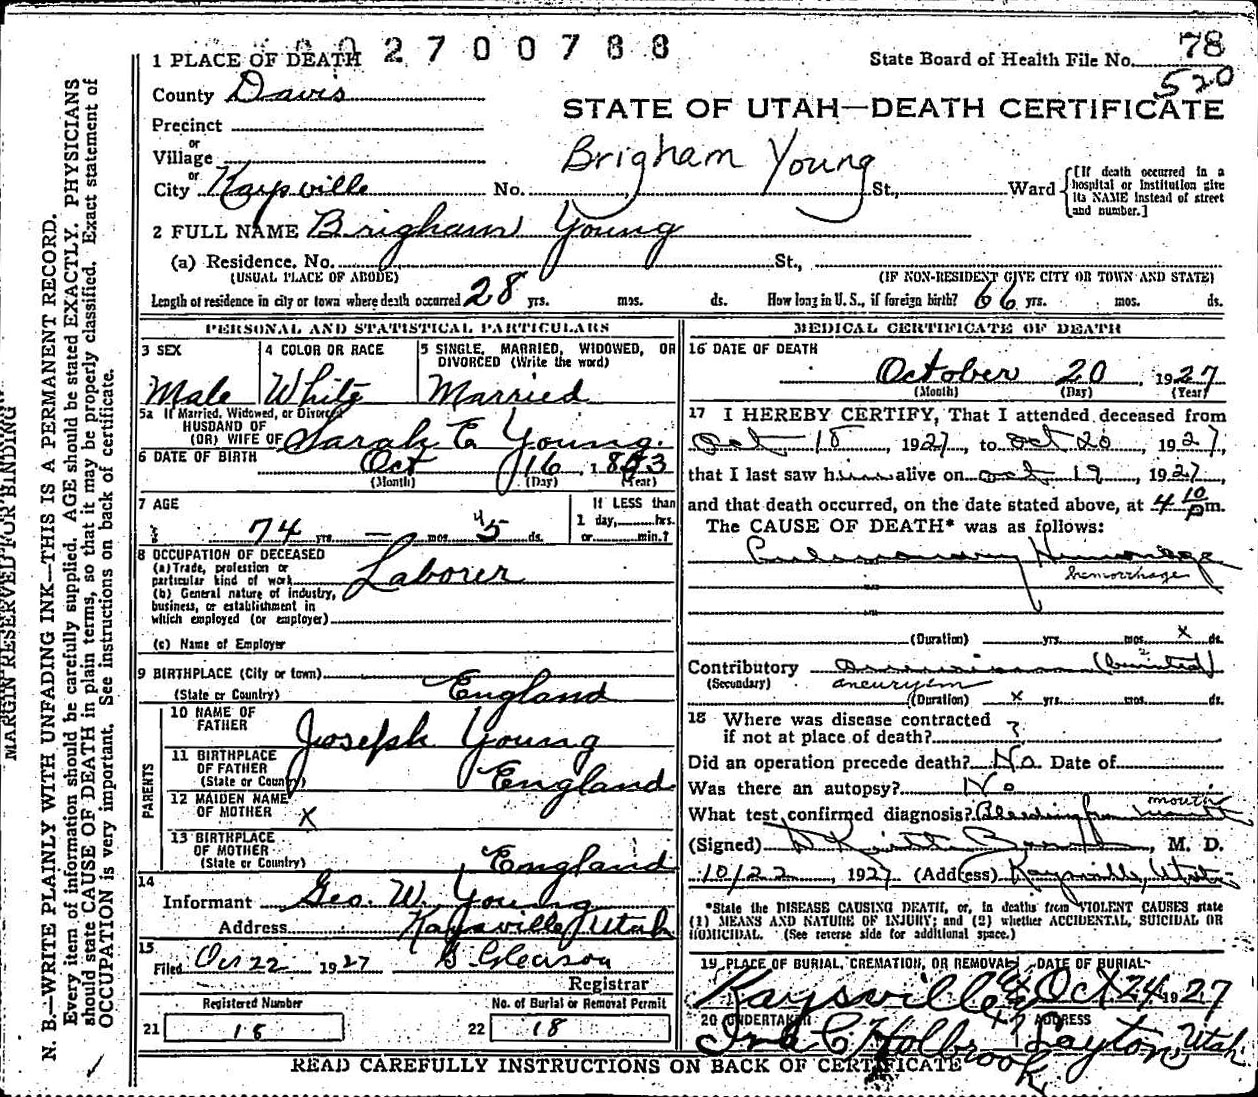 2700788
1 PLACE OF DEATH
State Board of Health File No. 78
520
County Davis
STATE OF UTAH—DEATH CERTIFICATE
Precinct
or
Village
Brigham Young
or
City Kaysville No. St., Ward
[If death occurred in a hospital or institution give its NAME instead of street and number.]
2 FULL NAME Brigham Young
(a) Residence. No. St.,
(USUAL PLACE OF ABODE) (IF NON-RESIDENT GIVE CITY OR TOWN AND STATE)
Length of residence in city or town where death occurred 28 yrs. mos. ds. How long in U. S., if foreign birth? 66 yrs. mos. ds.
PERSONAL AND STATISTICAL PARTICULARS
3 SEX
Male
4 COLOR OR RACE
White
5 SINGLE, MARRIED, WIDOWED, OR DIVORCED (Write the word)
Married
5a If Married, Widowed, or Divorced
HUSBAND OF
(OR) WIFE OF Sarah E Young.
6 DATE OF BIRTH Oct 16, 1853
(Month) (Day) (Year)
7 AGE
74 yrs. — mos. 4 5 ds.
If LESS than
1 day, hrs.
or min.?
8 OCCUPATION OF DECEASED
(a) Trade, profession or
particular kind of work Laborer
(b) General nature of industry,
business, or establishment in
which employed (or employer)
(c) Name of Employer
9 BIRTHPLACE (City or town)
(State or Country) England
PARENTS
10 NAME OF
FATHER Joseph Young
11 BIRTHPLACE
OF FATHER
(State or Country) England
12 MAIDEN NAME
OF MOTHER X
13 BIRTHPLACE
OF MOTHER
(State or Country) England
14
Informant Geo. W. Young
Address Kaysville Utah
15
Filed Oct 22 1927 B Gleason
Registrar
Registered Number
21 18
No. of Burial or Removal Permit
22 18
MEDICAL CERTIFICATE OF DEATH
16 DATE OF DEATH
October 20, 1927
(Month) (Day) (Year)
17 I HEREBY CERTIFY, That I attended deceased from
Oct 18, 1927, to Oct 20, 1927,
that I last saw him alive on Oct 19, 1927,
and that death occurred, on the date stated above, at 4 10 pm.
The CAUSE OF DEATH* was as follows:
Pulmonary Hemorrhage
hemorrhage
(Duration) yrs. mos. x ds.
Contributory
(Secondary) aneurysm
(Duration) x yrs. mos. ds.
18 Where was disease contracted
if not at place of death? ?
Did an operation precede death? No Date of
Was there an autopsy? No
What test confirmed diagnosis? Bleeding from mouth
mouth
(Signed) M. D.
10/22, 1927 (Address) Kaysville, Utah
*State the DISEASE CAUSING DEATH, or, in deaths from VIOLENT CAUSES state
(1) MEANS AND NATURE OF INJURY; and (2) whether ACCIDENTAL, SUICIDAL OR
HOMICIDAL. (See reverse side for additional space.)
19 PLACE OF BURIAL, CREMATION, OR REMOVAL DATE OF BURIAL
Kaysville Oct 24 1927
20 UNDERTAKER ADDRESS
Ira C Holbrook Layton Utah
READ CAREFULLY INSTRUCTIONS ON BACK OF CERTIFICATE
MARGIN RESERVED FOR BINDING
N. B.—WRITE PLAINLY WITH UNFADING INK—THIS IS A PERMANENT RECORD.
Every item of information should be carefully supplied. AGE should be stated EXACTLY. PHYSICIANS
should state CAUSE OF DEATH in plain terms, so that it may be properly classified. Exact statement of
OCCUPATION is very important. See instructions on back of certificate.